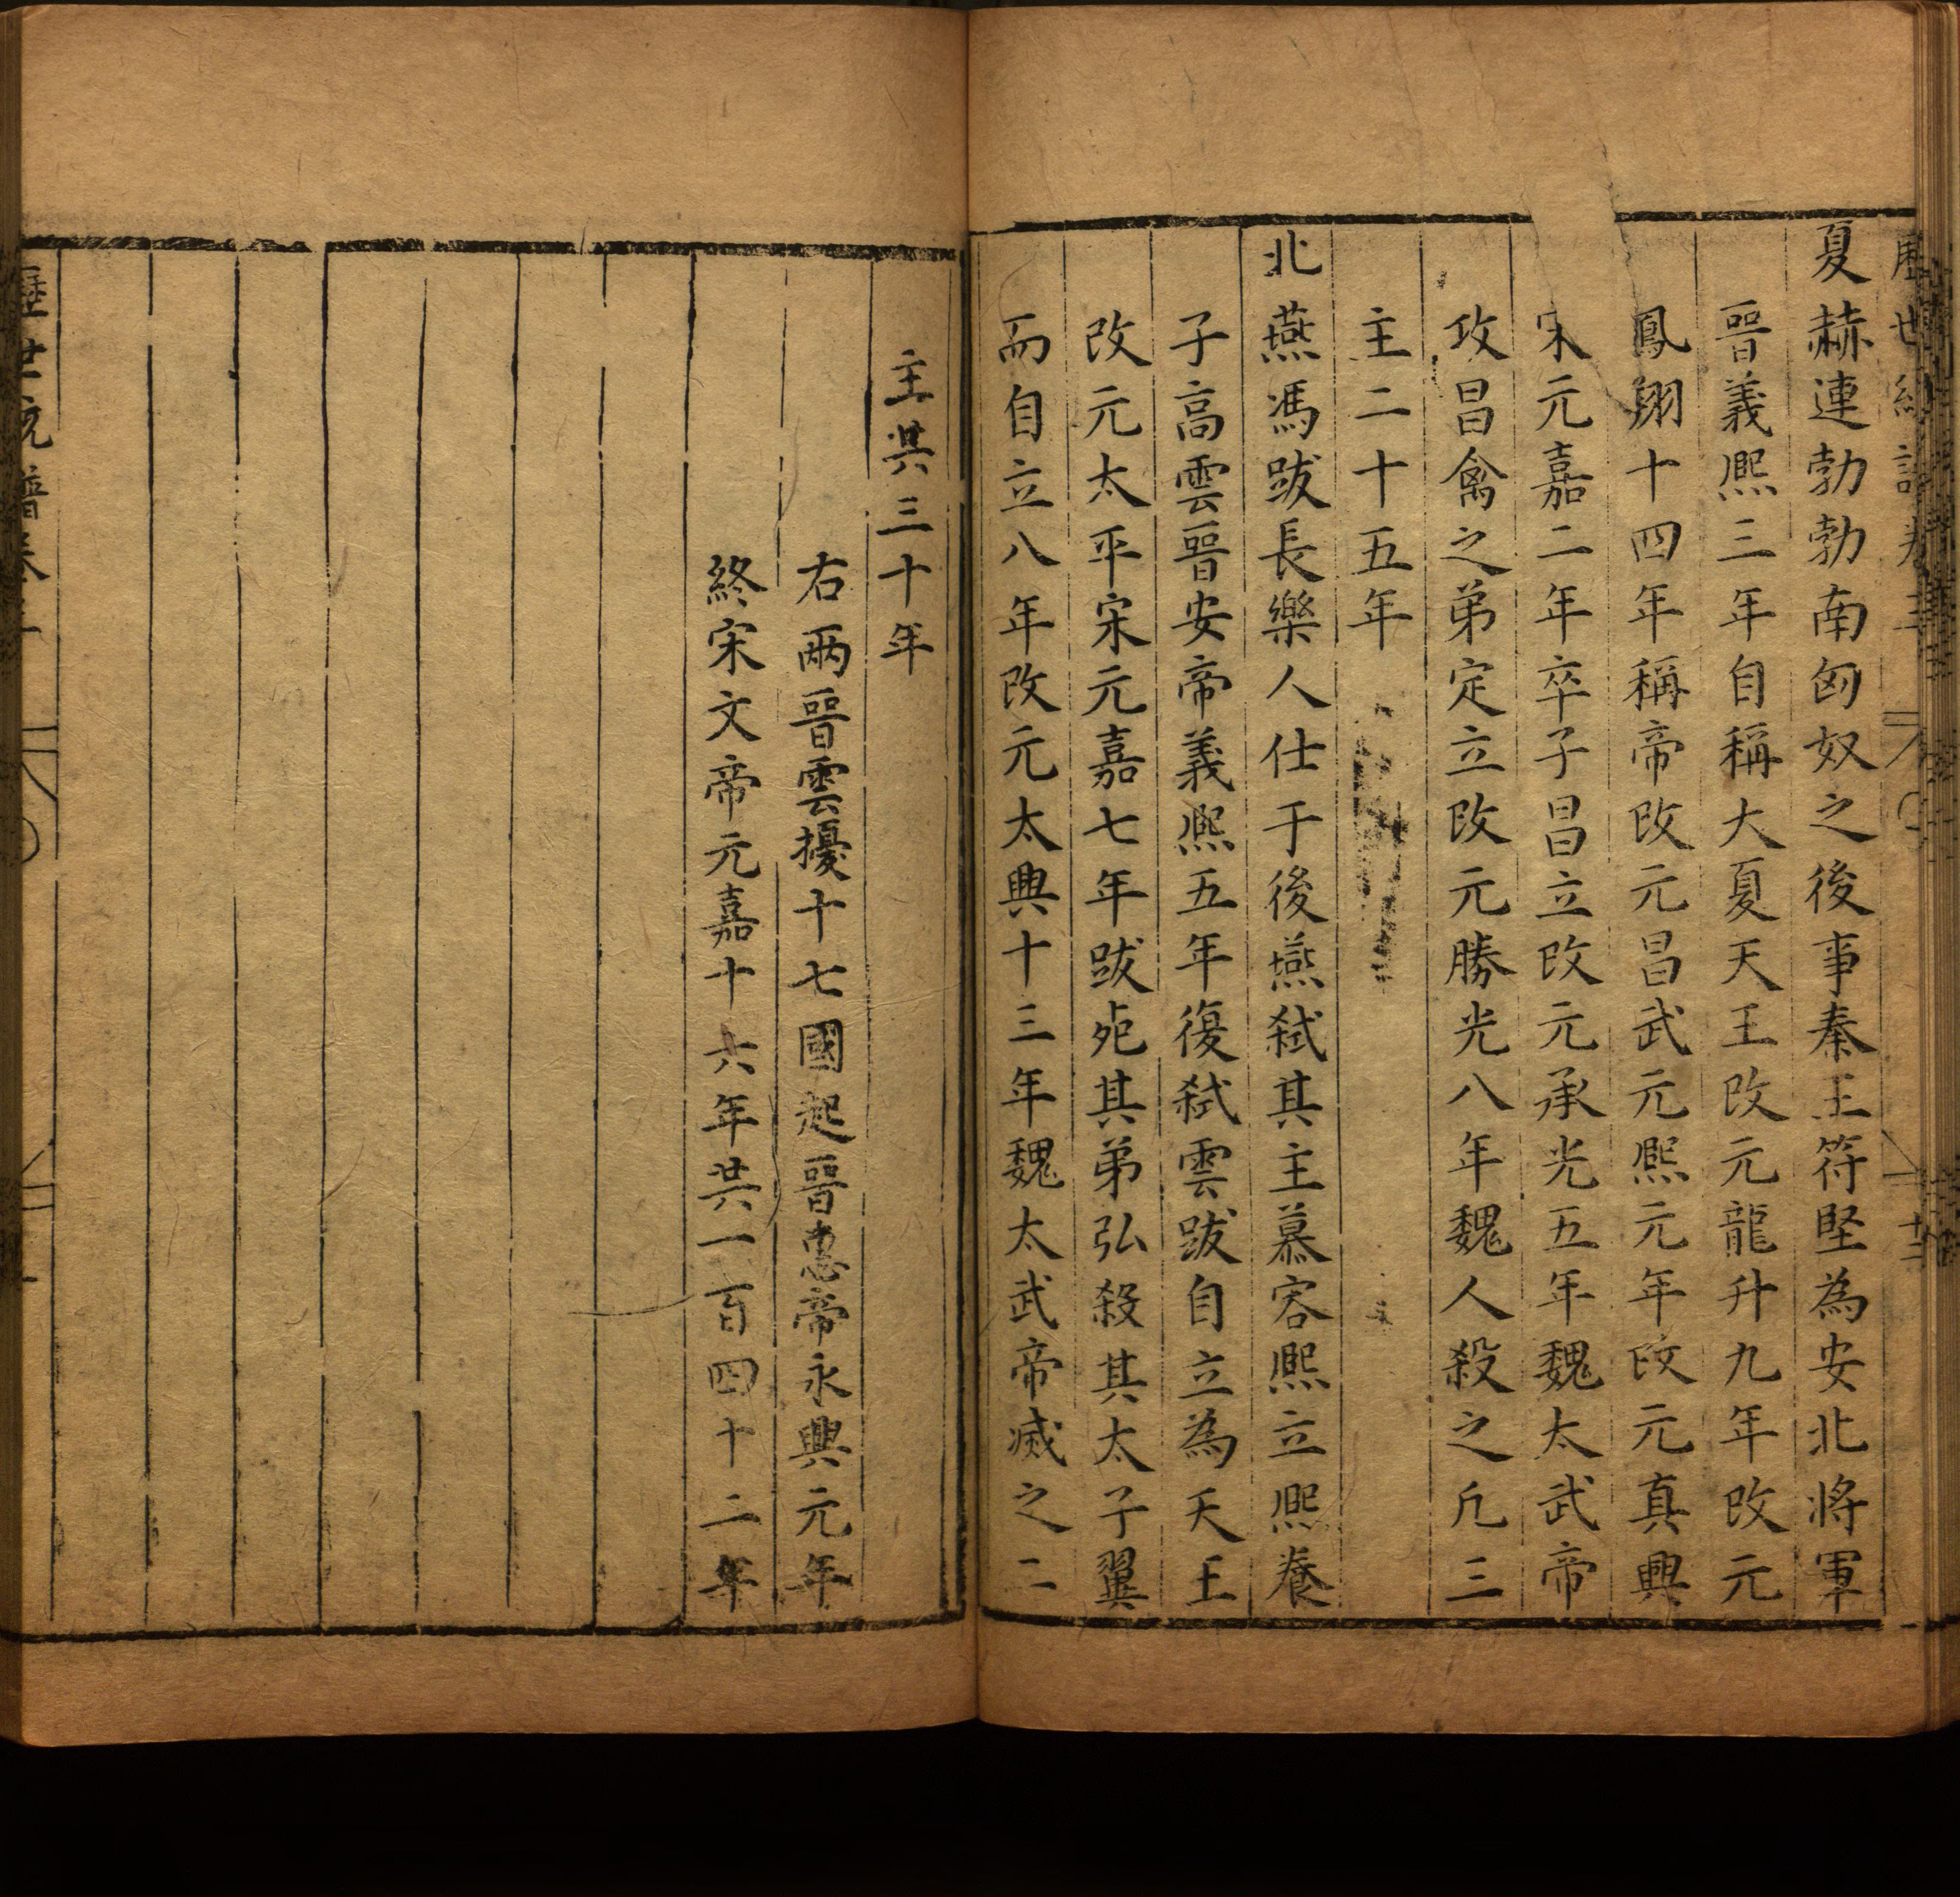 歷世統譜卷三 十二
夏赫連勃勃南匈奴之後事秦王符堅為安北將軍
晉義熙三年自稱大夏天王改元龍升九年改元
鳳翔十四年稱帝改元昌武元熙元年改元真興
宋元嘉二年卒子昌立改元承光五年魏太武帝
攻昌禽之弟定立改元勝光八年魏人殺之凡三
主二十五年
北燕馮跋長樂人仕于後燕弑其主慕容熙立熙養
子高雲晉安帝義熙五年復弑雲跋自立為天王
改元太平宋元嘉七年跋死其弟弘殺其太子翼
而自立八年改元太興十三年魏太武帝滅之二
主共三十年
右兩晉雲擾十七國起晉惠帝永興元年
終宋文帝元嘉十六年共一百四十二年
歷世統譜卷